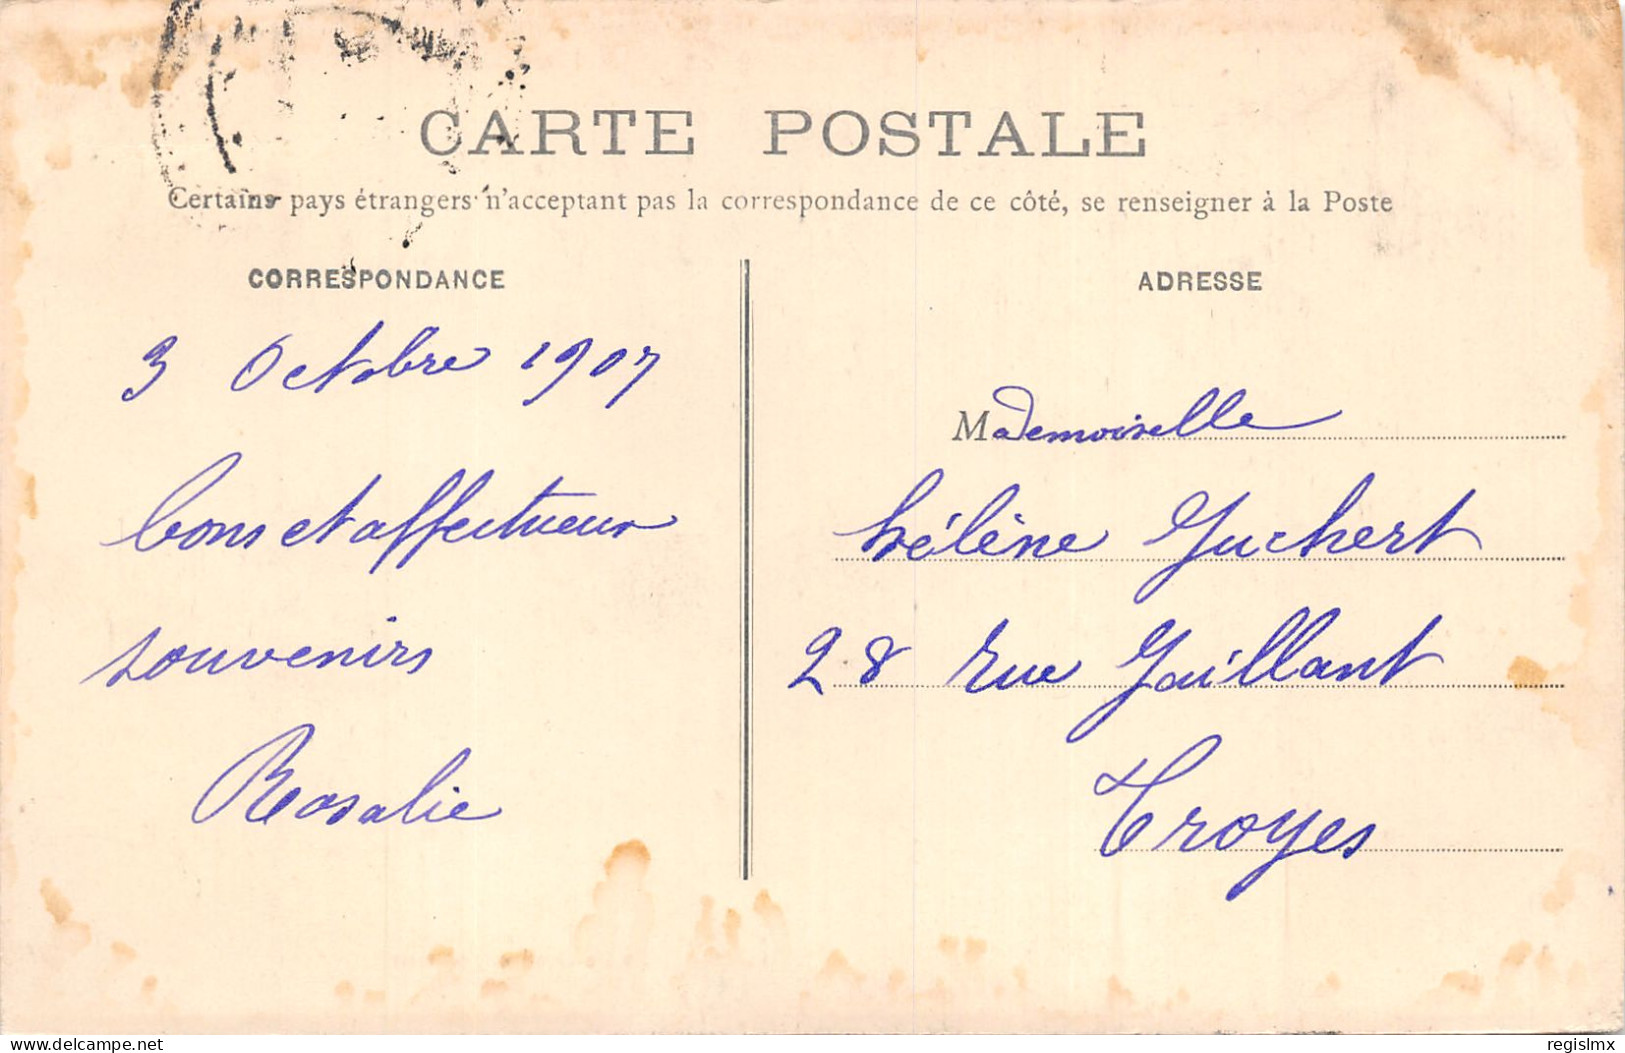 CARTE POSTALE
Certains pays étrangers n'acceptant pas la correspondance de ce côté, se renseigner à la Poste
CORRESPONDANCE
3 Octobre 1907
bons et affectueux
souvenirs
Rosalie
ADRESSE
Mademoiselle
Hélène Guchert
28 rue Gaillant
Troyes
delcampe.net
regislmx